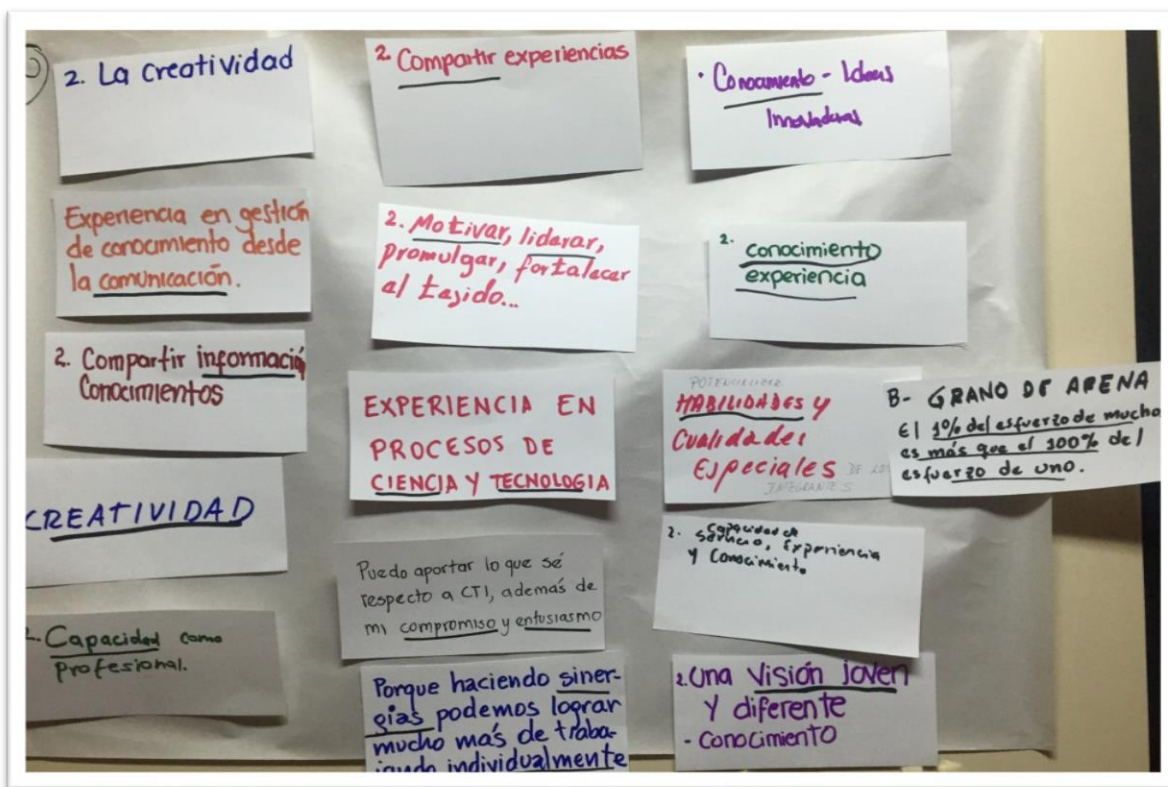 2. La creatividad
Experiencia en gestión
de conocimiento desde
la comunicación.
2. Compartir información
Conocimientos
CREATIVIDAD
2. Capacidad como
profesional.
2. Compartir experiencias
2. Motivar, liderar,
promulgar, fortalecer
el tejido...
EXPERIENCIA EN
PROCESOS DE
CIENCIA Y TECNOLOGIA
Puedo aportar lo que sé
respecto a CTI, además de
mi compromiso y entusiasmo
Porque haciendo siner-
gias podemos lograr
mucho más de traba-
jando individualmente
· Conocimiento - Ideas
Innovadoras
2. conocimiento
experiencia
POTENCIALIZAR
HABILIDADES y
Cualidades
Especiales DE LOS
INTEGRANTES
B- GRANO DE ARENA
El 1% del esfuerzo de mucho
es más que el 100% del
esfuerzo de uno.
2. Capacidad de
servicio, Experiencia
y Conocimiento
2. Una Visión joven
y diferente
- conocimiento